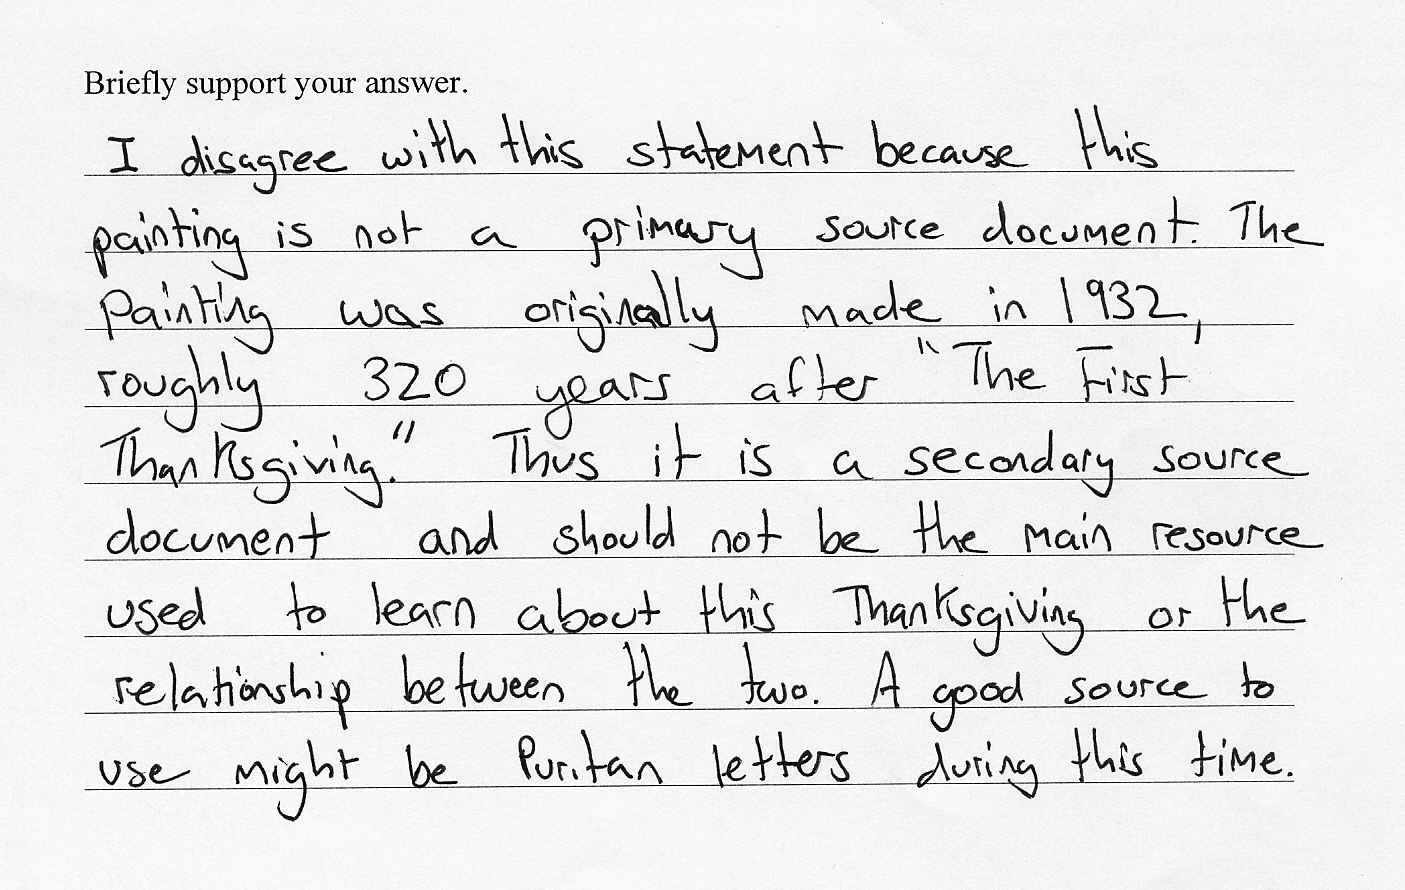 Briefly support your answer.
I disagree with this statement because this
painting is not a primary source document. The
Painting was originally made in 1932,
roughly 320 years after "The First
Thanksgiving." Thus it is a secondary source
document and should not be the main resource
used to learn about this Thanksgiving or the
relationship between the two. A good source to
use might be Puritan letters during this time.